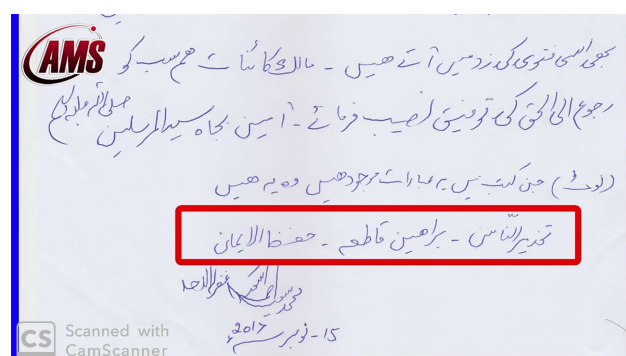 AMS
بھی اسی فتویٰ کی زد میں آتے ھیں ۔ مالک کائنات ھم سب کو
رجوع الی الحق کی توفیق نصیب فرمائے ۔ آمین بجاہ سید المرسلین صلی اللہ علیہ وسلم
(نوٹ) جن کتب میں یہ عبارات موجود ھیں وہ یہ ھیں
تحذیر النّاس ۔ براھین قاطعہ ۔ حفظ الایمان
محمد
15 - نومبر 2017ء
CS Scanned with
CamScanner